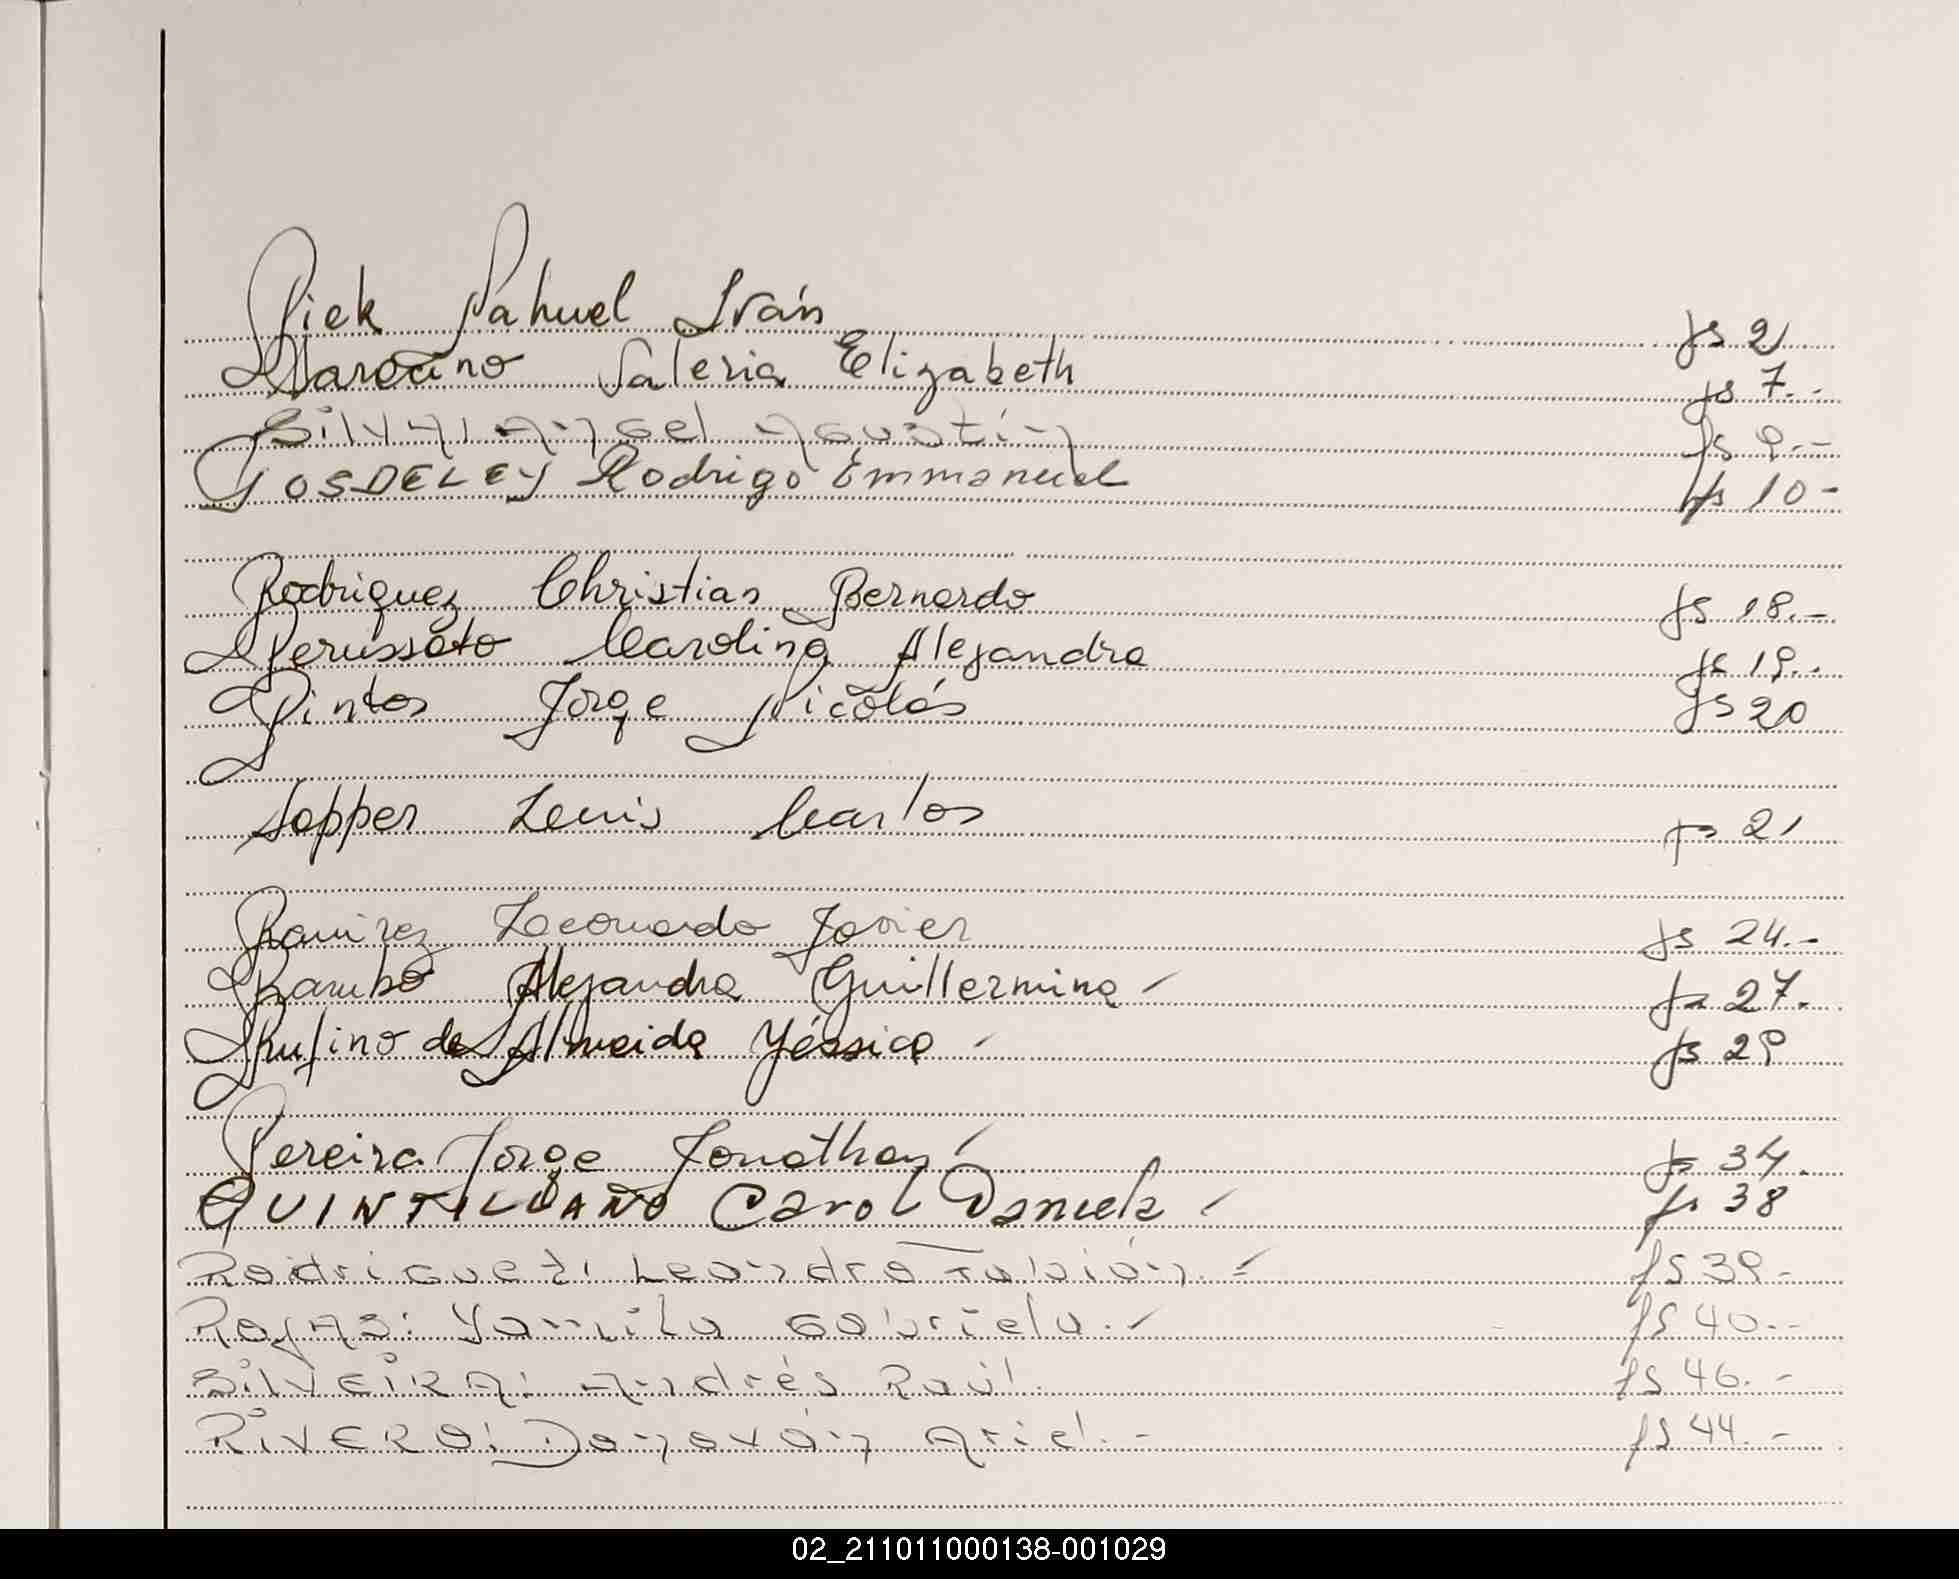 Piek Nahuel Iván fs 2
Narcano Valeria Elizabeth fs 7.-
SILVA: Angel Agustín fs 9.-
POSDELEY Rodrigo Emmanuel fs 10-
Rodriguez Christian Bernardo fs 18.-
Perussato Carolina Alejandra fs 19..
Pintos Jorge Nicolás fs 20
Sopper Luis Carlos fs 21
Ramirez Leonardo Javier fs 24.-
Rambo Alejandra Guillermina - fs 27.
Rufino de Almeida Yéssica - fs 29
Pereira Jorge Jonathan fs 34.
QUINTILLANO Carol Daniela - fs 38
Rodriguez: Leandro Fabián. = fs 39-
Rojas: Yamila Gabriela. - fs 40.-
SILVEIRA: Andrés Raúl. fs 46.-
RIVERO: Donován Ariel. - fs 44.-
02_211011000138-001029